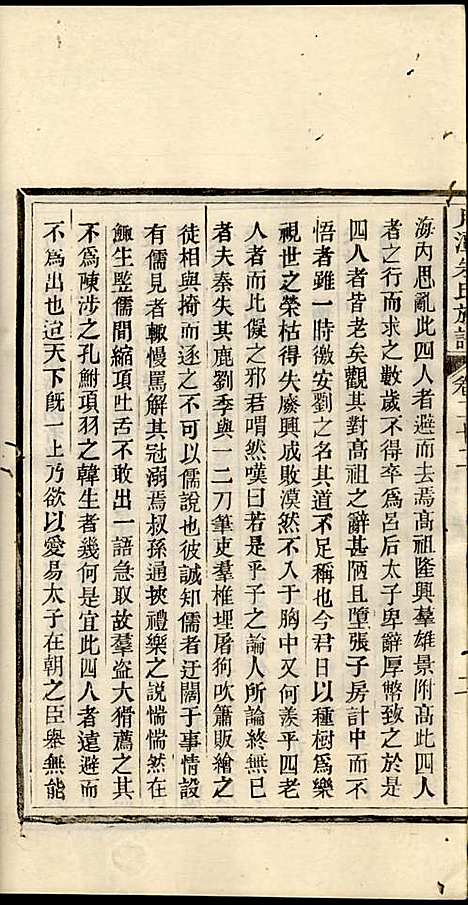 海內思亂此四人者避而去焉高祖隆興羣雄景附高此四人
者之行而求之數歲不得卒為呂后太子卑辭厚幣致之於是
四人者皆老矣觀其對高祖之辭甚陋且墮張子房計中而不
悟者雖一時徼安劉之名其道不足稱也今君日以種樹為樂
視世之榮枯得失廢興成敗漠然不入于胸中又何羨乎四老
人者而比儗之邪君喟然嘆曰若是乎子之論人所論終無已
者夫秦失其鹿劉季與一二刀筆吏羣椎埋屠狗吹簫販繒之
徒相與掎而逐之不可以儒說也彼誠知儒者迂闊于事情設
有儒見者輙慢罵解其冠溺焉叔孫通挾禮樂之說惴惴然在
鯫生監儒間縮項吐舌不敢出一語急取故羣盜大猾薦之其
不為陳涉之孔鮒項羽之韓生者幾何是宜此四人者遠避而
不為出也迨天下既一上乃欲以愛易太子在朝之臣舉無能
朱氏族譜
卷二十二